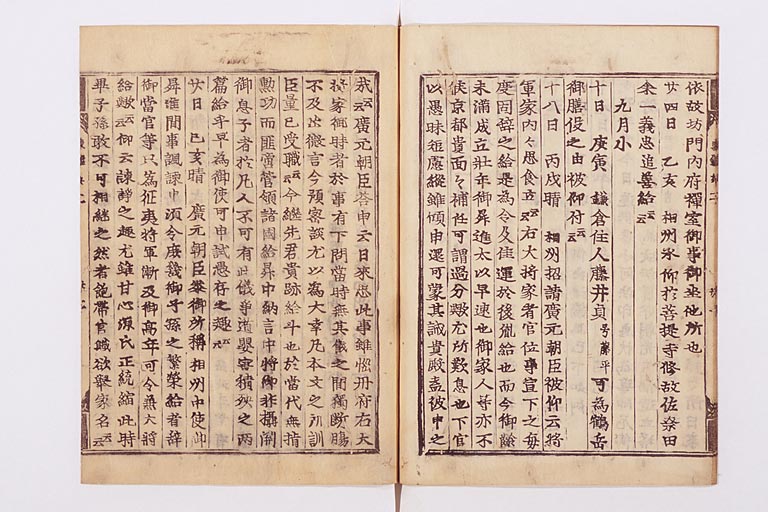 依故坊門内府禪室御事御坐他所也
廿四日　乙亥　相州氷仰於菩提寺修故佐奈田
余一義忠追善給云云
九月小
十日　庚寅　鎌倉住人藤井貞号藤平可為鶴岳
御膳役之由被仰付云云
十八日　丙戌晴　相州招請廣元朝臣被仰云將
軍家内々思食立云云右大將家者官位事宣下之毎
度固辞之給是為令及佳運於後胤給也而今御齢
未満成立壮年御昇進太以早速也御家人等亦不
候京都面々補任可謂過分歟尤所歎息也下官
以愚昧短慮縱雖傾申還可蒙其誡貴殿盍被申之
哉云云廣元朝臣答申云日來思此事雖惱丹府右大
將家御時者於事有下問當時無其儀之間獨断腸
不及出微言今預密談尤以為大幸凡本文之所訓
臣量已受職云云今継先君貴跡給計也於當代無指
勲功而匪啻管領諸國給昇中納言中將御非攝関
御息子者於凡人不可有此儀爭遁嬰害積殃之両
篇給乎早為御使可申試愚存之趣云云
廿日　己亥晴　廣元朝臣參御所稱相州中使御
昇進間事諷諫申須令庶幾御子孫之繁榮給者辞
御當官等只為征夷將軍漸及御高年可令兼大將
給歟云云仰云諫諍之趣尤雖甘心源氏正統縮此時
畢子孫敢不可相継之然者飽帶官職欲擧家名云云